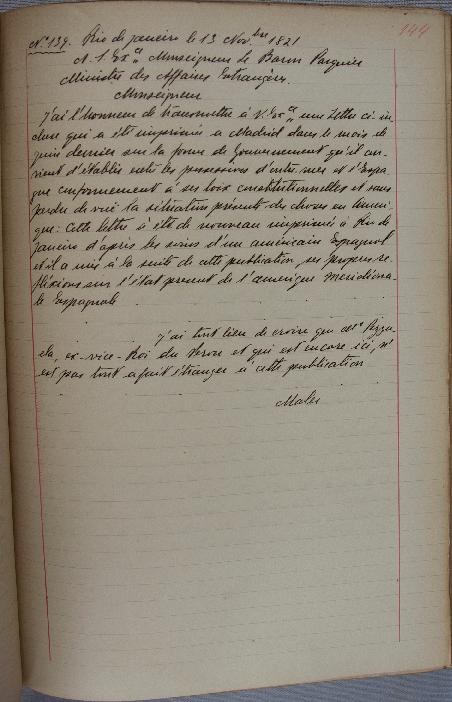 144
Nº 139. Rio de janeiro le 13 Novbre 1821
A. S. Exce Monseigneur le Baron Pasquier
Ministre des Affaires Etrangères.
Monseigneur
j'ai l'honneur de transmettre à V. Exce une lettre ci-in
cluse qui a été imprimée a Madrid dans le mois de
juin dernier sur la forme de Gouvernement qu'il con-
vient d'établir entre les possessions d'outre mer et l'Espa
gne conformement à ses loix constitutionnelles et sans
perdre de vue la situation présente des choses en Améri
que: Cette lettre a été de nouveau imprimée à Rio de
janeiro d'après les soins d'un américain Espagnol
et il a mis à la suite de cette publication, ses propres re
fléxions sur l'état present de l'amerique méridiona-
le Espagnole
j'ai tout lieu de croire que Mr Pezzu
ela, ex-vice-Roi du Perou et qui est encore ici, n'
est pas tout a fait étranger à cette publication
Maler